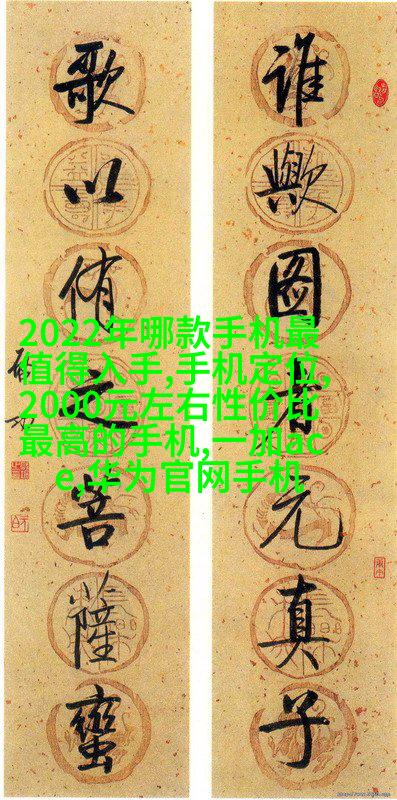 谁歟图者元真子
歌以侑之菩薩蠻
启功
2022年哪款手机最
值得入手,手机定位,
2000元左右性价比
最高的手机,一加ac
e,华为官网手机